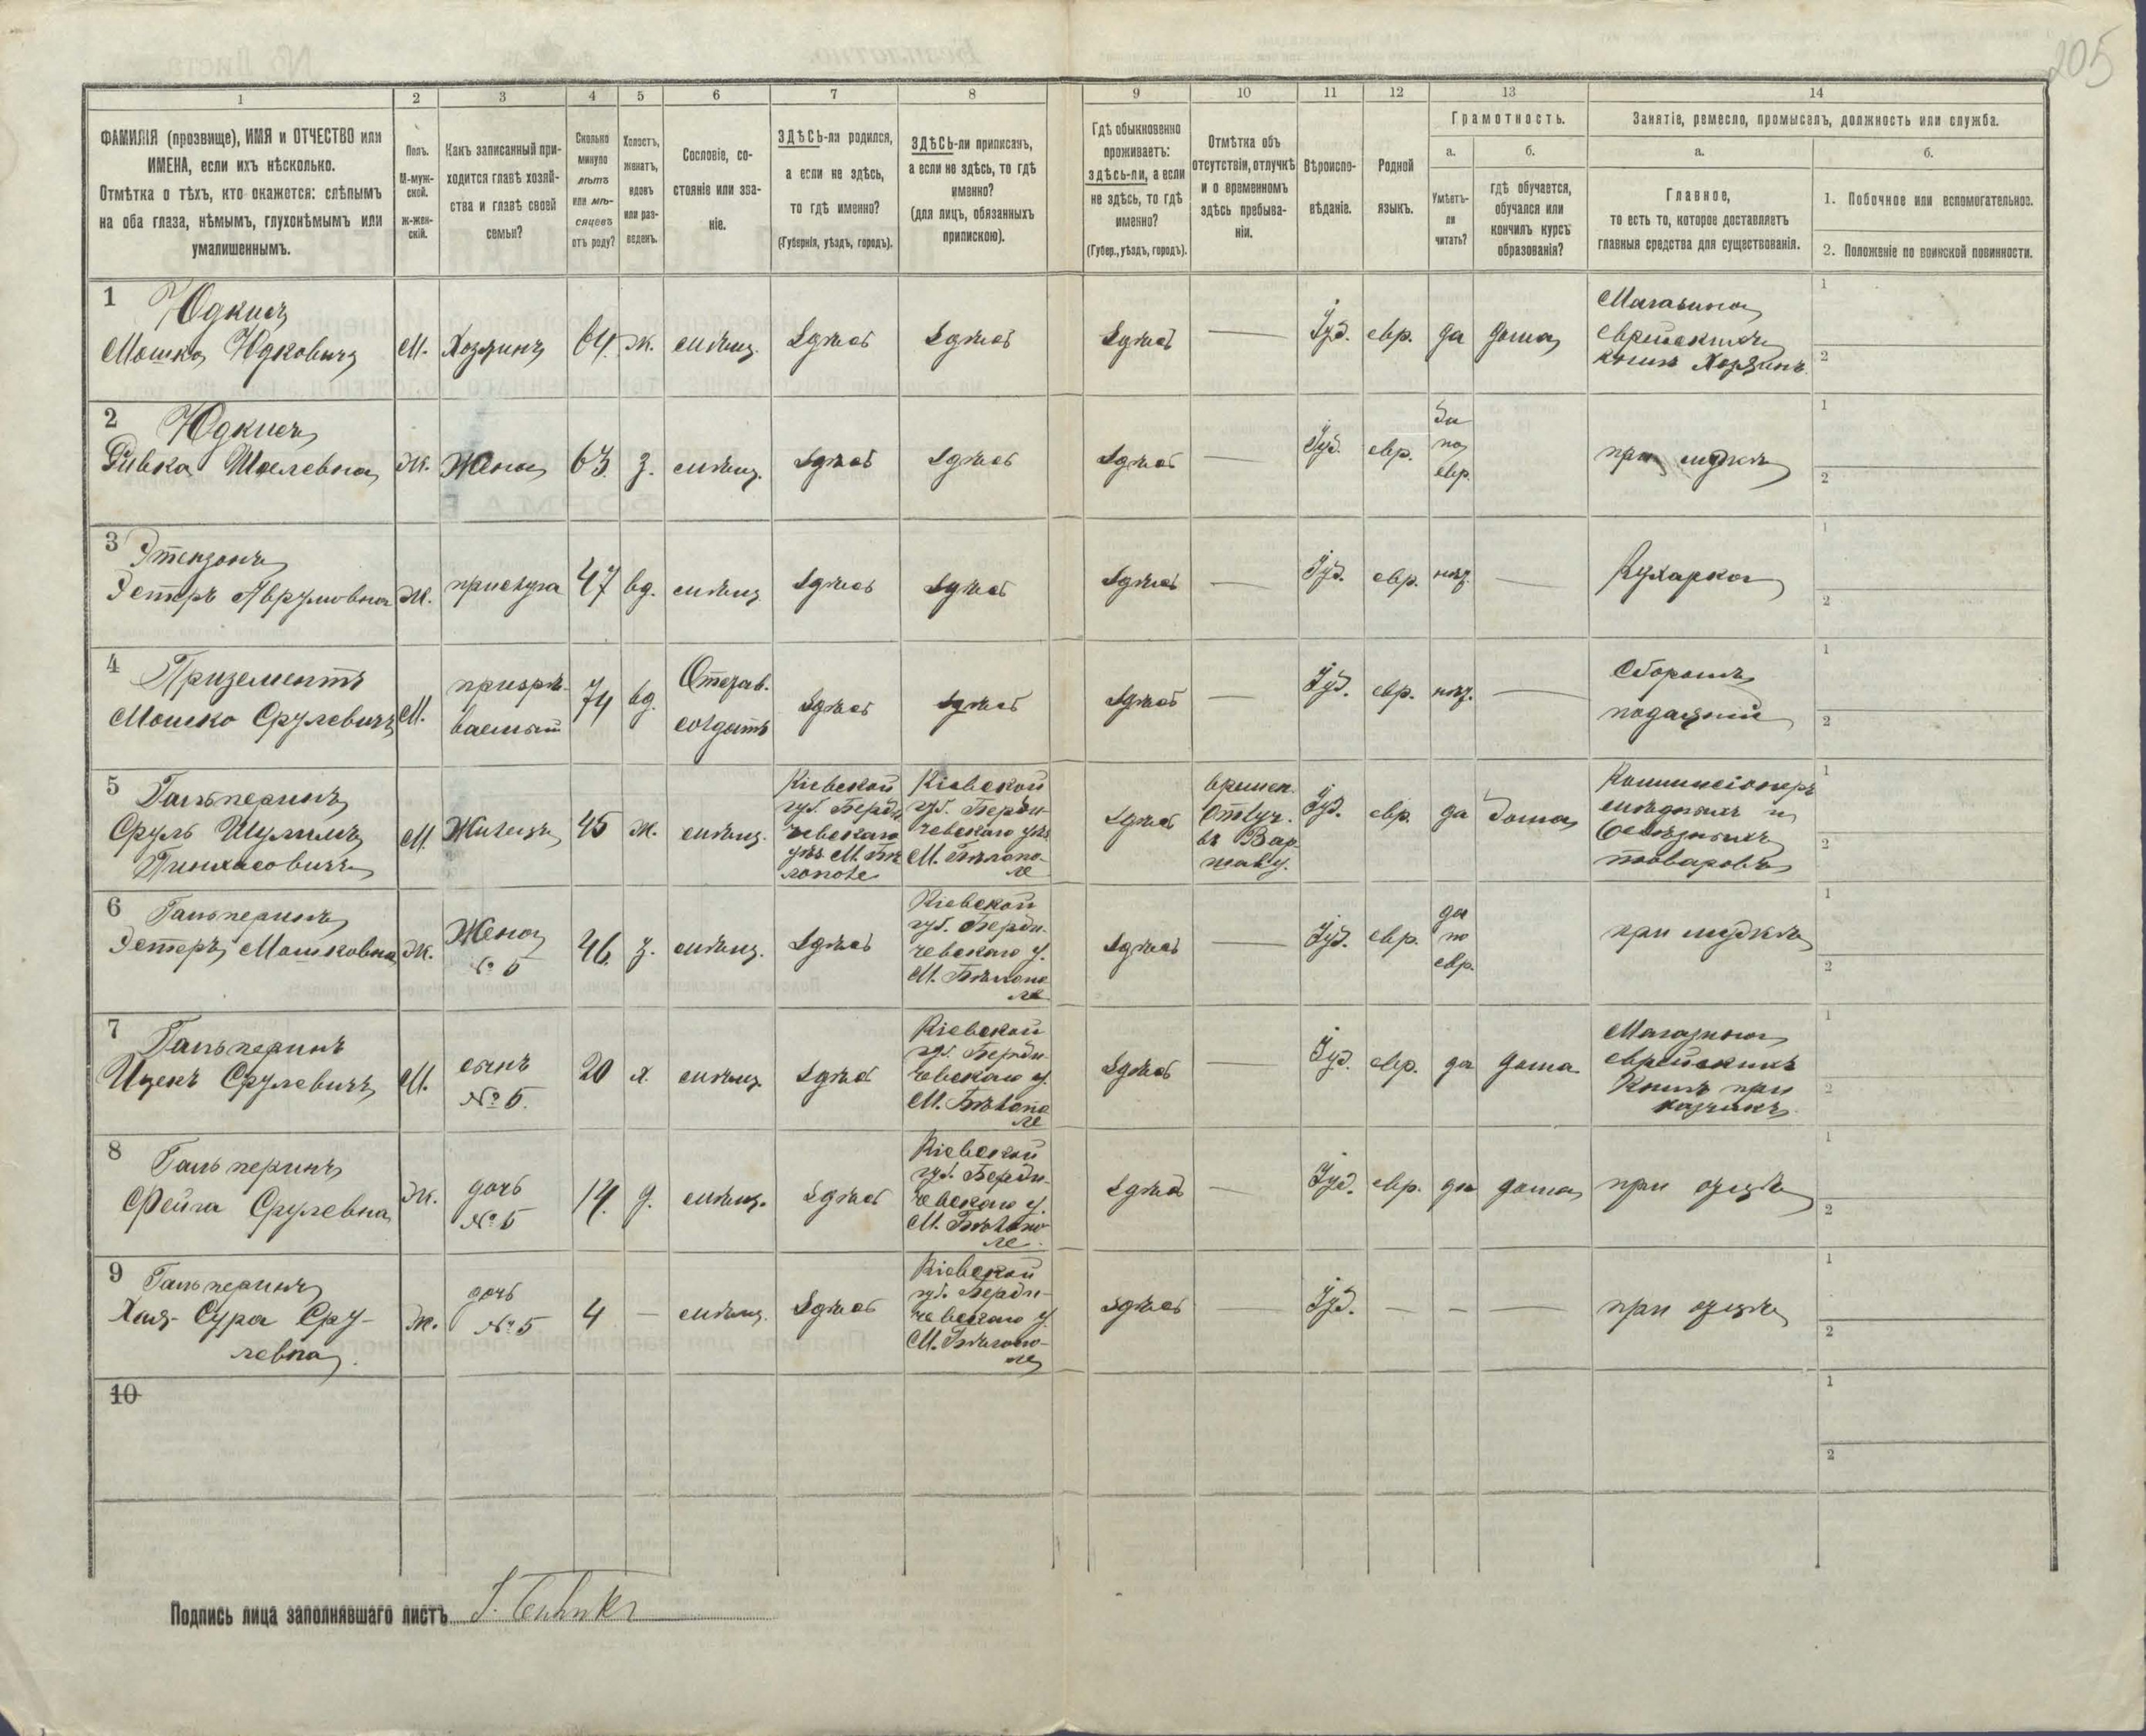 205
1
2
3
4
5
6
7
8
9
10
11
12
13
14
ФАМИЛІЯ (прозвище), ИМЯ и ОТЧЕСТВО или
ИМЕНА, если ихъ нѣсколько.
Отмѣтка о тѣхъ, кто окажется: слѣпымъ
на оба глаза, нѣмымъ, глухонѣмымъ или
умалишеннымъ.
Полъ.
М-муж-
ской.
ж-жен-
скій.
Какъ записанный при-
ходится главѣ хозяй-
ства и главѣ своей
семьи?
Сколько
минуло
лѣтъ
или мѣ-
сяцевъ
отъ роду?
Холостъ,
женатъ,
вдовъ
или раз-
веденъ.
Сословіе, со-
стояніе или зва-
ніе.
ЗДѢСЬ-ли родился,
а если не здѣсь,
то гдѣ именно?
(Губернія, уѣздъ, городъ).
ЗДѢСЬ-ли приписанъ,
а если не здѣсь, то гдѣ
именно?
(для лицъ, обязанныхъ
припискою).
Гдѣ обыкновенно
проживаетъ:
здѣсь-ли, а если
не здѣсь, то гдѣ
именно?
(Губер., уѣздъ, городъ).
Отмѣтка объ
отсутствіи, отлучкѣ
и о временномъ
здѣсь пребыва-
ніи.
Вѣроиспо-
вѣданіе.
Родной
языкъ.
Грамотность.
а.
б.
Умѣетъ-
ли
читать?
гдѣ обучается,
обучался или
кончилъ курсъ
образованія?
Занятіе, ремесло, промыселъ, должность или служба.
а.
б.
Главное,
то есть то, которое доставляетъ
главныя средства для существованія.
1. Побочное или вспомогательное.
2. Положеніе по воинской повинности.
1 Юдкисъ
Мошко Юдковичъ
М.
Хозяинъ
64.
ж.
мѣщ.
Здѣсь
Здѣсь
Здѣсь
—
Іуд.
евр.
да
дома
Магазина
еврейскихъ
книгъ Хозяинъ
1
2
2 Юдкисъ
Ривка Шоелевна
Ж.
Жена
63.
з.
мѣщ.
Здѣсь
Здѣсь
Здѣсь
—
Іуд.
евр.
да
по
евр.
при мужѣ
1
2
3 Этензонъ
Эстеръ Аврумовна
Ж.
прислуга
47
вд.
мѣщ.
Здѣсь
Здѣсь
Здѣсь
—
Іуд.
евр.
нѣт.
—
Кухарка
1
2
4 Призементъ
Мошко Срулевичъ
М.
призрѣ-
ваемый
74
вд.
Отстав.
солдатъ
Здѣсь
Здѣсь
Здѣсь
—
Іуд.
евр.
нѣт.
—
Сборомъ
подаяній
1
2
5 Гальперинъ
Сруль Шулимъ
Пинхасовичъ
М.
Жилецъ
45
ж.
мѣщ.
Кіевской
губ. Берди-
чевскаго
уѣз М. Бѣ
лополе
Кіевской
губ. Берди-
чевскаго уѣз.
М. Бѣлопо-
ле
Здѣсь
времен.
Отлуч.
въ Вар
шаву.
Іуд.
евр.
да
дома
Коммисіонеръ
мѣдныхъ и
желѣзныхъ
товаровъ
1
2
6 Гальперинъ
Эстеръ Мошковна
Ж.
Жена
№ 5
46.
з.
мѣщ.
Здѣсь
Кіевской
губ. Берди-
чевскаго у.
М. Бѣлопо
ле
Здѣсь
—
Іуд.
евр.
да
по
евр.
при мужѣ
1
2
7 Гальперинъ
Ицекъ Срулевичъ
М.
сынъ
№ 5.
20
х.
мѣщ.
Здѣсь
Кіевской
губ. Берди-
чевскаго у.
М. Бѣлопо
ле
Здѣсь
—
Іуд.
евр.
да
дома
Магазина
еврейскихъ
Книгъ при
кащикъ
1
2
8 Гальперинъ
Фейга Срулевна
Ж.
дочь
№ 5
14.
д.
мѣщ.
Здѣсь
Кіевской
губ. Берди-
чевскаго у.
М. Бѣлопо-
ле
Здѣсь
—
Іуд.
евр.
да
дома
при отцѣ
1
2
9 Гальперинъ
Хая-Сура Сру-
левна.
Ж.
дочь
№ 5
4
—
мѣщ.
Здѣсь
Кіевской
губ. Берди-
чевскаго у.
М. Бѣлопо-
ле
Здѣсь
—
Іуд.
—
—
—
при отцѣ
1
2
10
1
2
Подпись лица заполнявшаго листъ